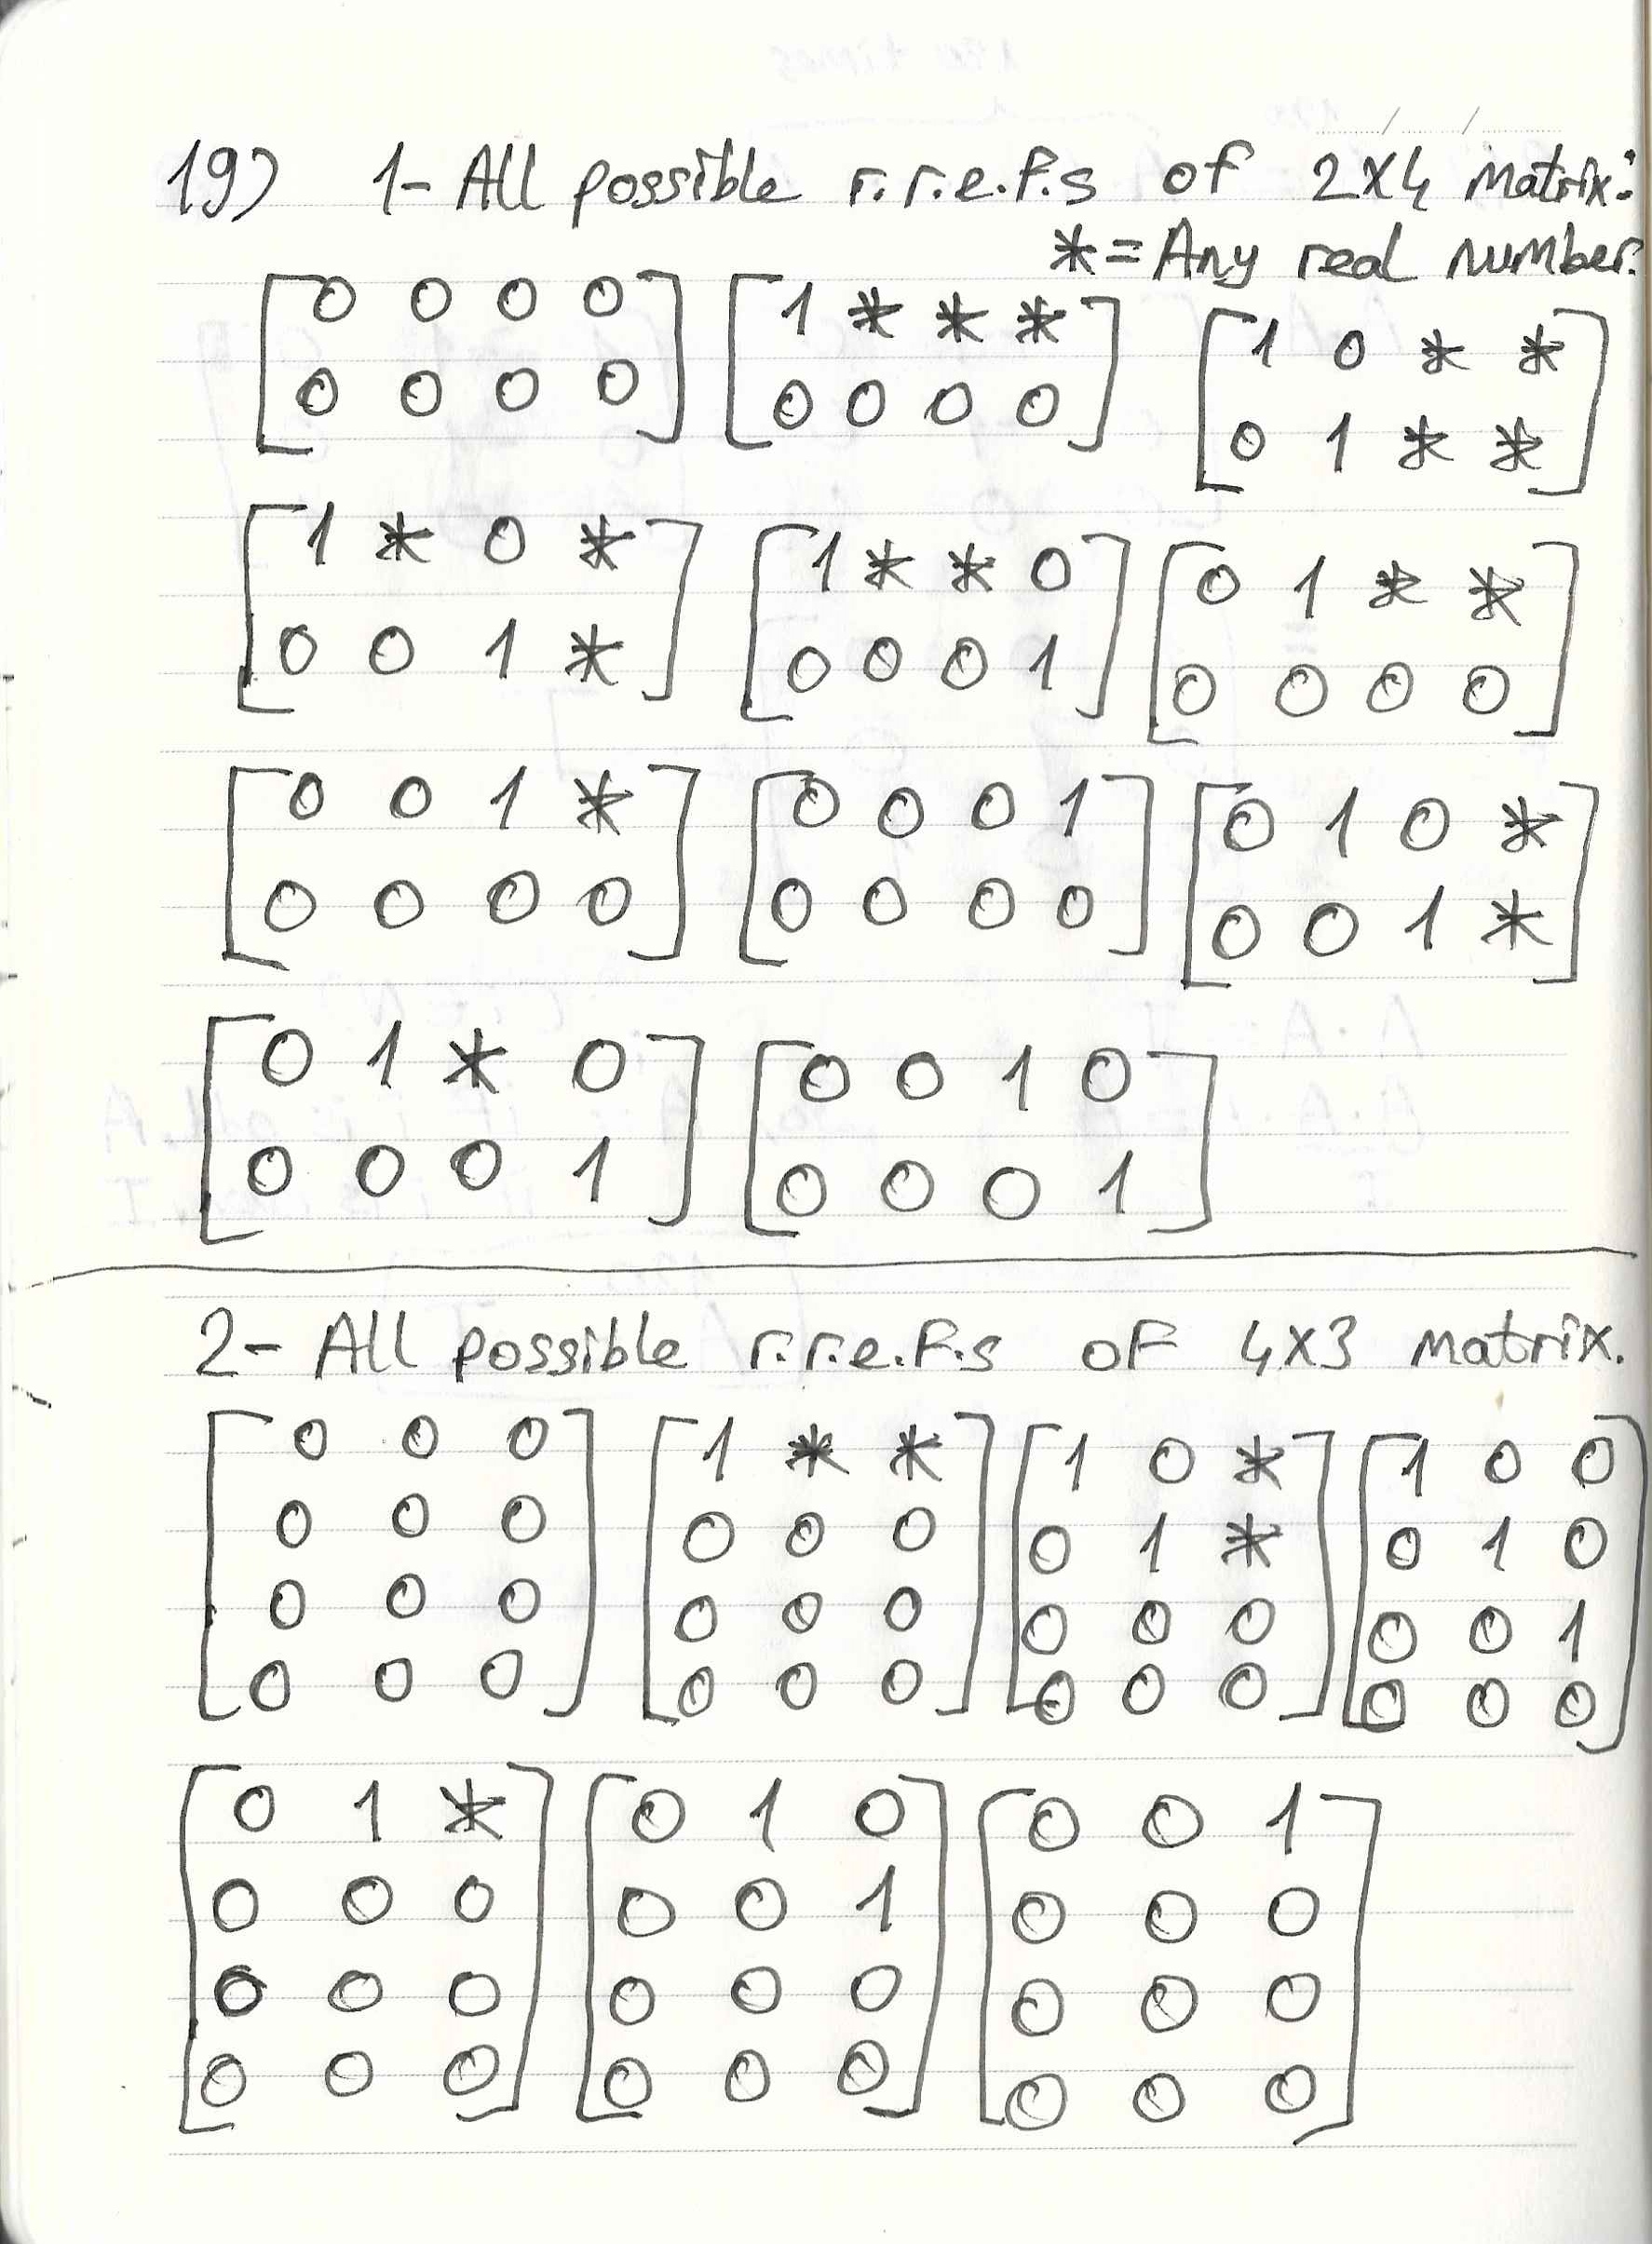 19) 1- All possible r.r.e.f.s of 2x4 matrix:
* = Any real number.
[0 0 0 0] [1 * * *] [1 0 * *]
[0 0 0 0] [0 0 0 0] [0 1 * *]
[1 * 0 *] [1 * * 0] [0 1 * *]
[0 0 1 *] [0 0 0 1] [0 0 0 0]
[0 0 1 *] [0 0 0 1] [0 1 0 *]
[0 0 0 0] [0 0 0 0] [0 0 1 *]
[0 1 * 0] [0 0 1 0]
[0 0 0 1] [0 0 0 1]
2- All possible r.r.e.f.s of 4x3 matrix.
[0 0 0] [1 * *] [1 0 *] [1 0 0]
[0 0 0] [0 0 0] [0 1 *] [0 1 0]
[0 0 0] [0 0 0] [0 0 0] [0 0 1]
[0 0 0] [0 0 0] [0 0 0] [0 0 0]
[0 1 *] [0 1 0] [0 0 1]
[0 0 0] [0 0 1] [0 0 0]
[0 0 0] [0 0 0] [0 0 0]
[0 0 0] [0 0 0] [0 0 0]